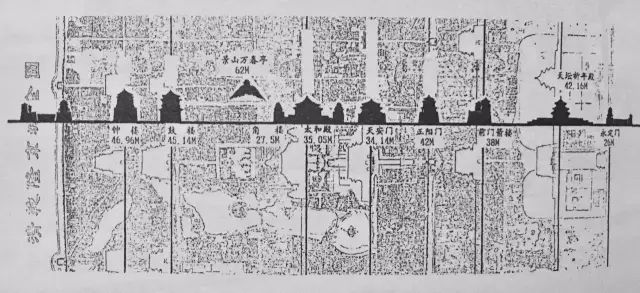 景山万春亭
62M
天坛祈年殿
42.16M
钟楼
46.96M
鼓楼
45.14M
角楼
27.5M
太和殿
35.05M
天安门
34.14M
正阳门
42M
前门箭楼
38M
永定门
26M